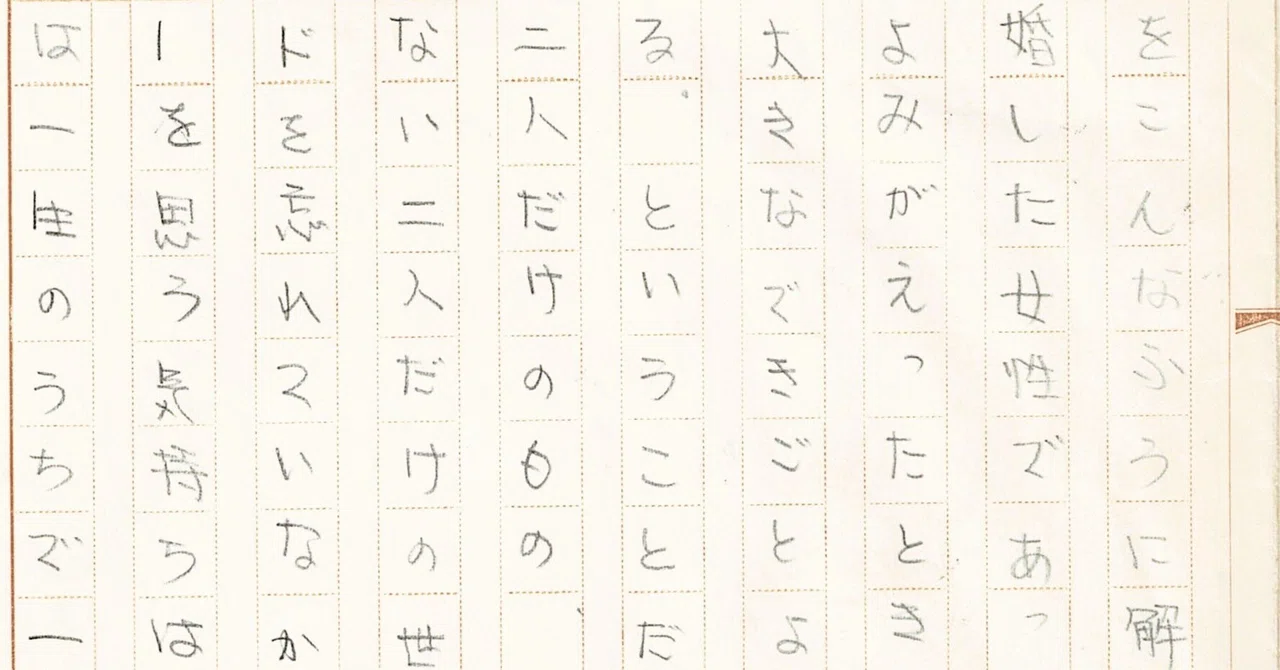 をこんなふうに解
婚した女性であっ
よみがえったとき
大きなできごとよ
る ということだ
二人だけのもの
ない二人だけの世
ドを忘れていないか
ーを思う気持らは
は一生のうちで一